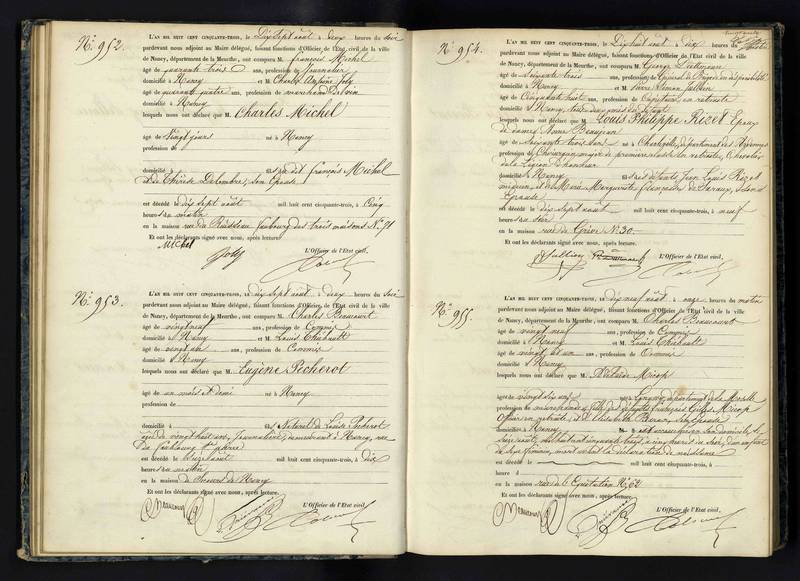 N° 952.
L'AN MIL HUIT CENT CINQUANTE-TROIS, le Dix sept août à deux heures du soir
pardevant nous adjoint au Maire délégué, faisant fonctions d'Officier de l'Etat civil de la ville
de Nancy, département de la Meurthe, ont comparu M. françois Michel
âgé de quarante trois ans, profession de Journalier
domicilié à Nancy et M.
âgé de quarante quatre ans, profession de marchand de vin
domicilié à Nancy
lesquels nous ont déclaré que M. Charles Michel
âgé de Vingt jours né à Nancy
profession de
domicilié à fils du dit françois Michel
et de Thérèse Delombre, son Epouse
est décédé le dix sept août mil huit cent cinquante-trois, à Cinq
heures du matin
en la maison rue du Ruisseau faubourg des trois maisons N°
Et ont les déclarants signé avec nous, après lecture.
Michel
L'Officier de l'Etat civil,
N° 953.
L'AN MIL HUIT CENT CINQUANTE-TROIS, le dix sept août à deux heures du soir
pardevant nous adjoint au Maire délégué, faisant fonctions d'Officier de l'Etat civil de la ville
de Nancy, département de la Meurthe, ont comparu M. Charles Beaucourt
âgé de vingt neuf ans, profession de Commis
domicilié à Nancy et M. Louis Thibault
âgé de vingt un ans, profession de Commis
domicilié à Nancy
lesquels nous ont déclaré que M. Eugène Pécherot
âgé de un mois et demi né à Nancy
profession de
domicilié à fils Naturel de Louise Pécherot
âgée de vingt huit ans, Journalière, demeurant à Nancy, rue
du faubourg St pierre
est décédé le mil huit cent cinquante-trois, à dix
heures du matin
en la maison de Secours de Nancy
Et ont les déclarants signé avec nous, après lecture.
L'Officier de l'Etat civil,
N° 954.
L'AN MIL HUIT CENT CINQUANTE-TROIS, le Dix huit août à dix heures du
pardevant nous adjoint au Maire délégué, faisant fonctions d'Officier de l'Etat civil de la ville
de Nancy, département de la Meurthe, ont comparu M. George
âgé de Soixante trois ans, profession de Général de Brigade en disponibilité
domicilié à Nancy et M. Pierre Simon Jullien
âgé de Cinquante huit ans, profession de Capitaine en retraite
domicilié à Nancy, tous deux amis du défunt
lesquels nous ont déclaré que M. Louis Philippe Rizet Epoux
de dame Anne Beaujean
âgé de soixante trois ans né à Charleville, département des Ardennes
profession de Chirurgien major de première classe en retraite, Chevalier
de la Légion d'honneur
domicilié à Nancy fils de défunts Jean Louis Rizet
et de Marie Marguerite françoise de Saraux, son
Epouse
est décédé le dix sept août mil huit cent cinquante-trois, à neuf
heures du soir
en la maison rue de Grève N° 30.
Et ont les déclarants signé avec nous, après lecture.
Jullien
L'Officier de l'Etat civil,
N° 955.
L'AN MIL HUIT CENT CINQUANTE-TROIS, le dix neuf août à onze heures du matin
pardevant nous adjoint au Maire délégué, faisant fonctions d'Officier de l'Etat civil de la ville
de Nancy, département de la Meurthe, ont comparu M. Charles Beaucourt
âgé de vingt neuf ans, profession de Commis
domicilié à Nancy et M. Louis Thibault
âgé de vingt et un ans, profession de Commis
domicilié à Nancy
lesquels nous ont déclaré que M. Adelaïde Micop
âgé de vingt six ans né à Longwy, département de la Moselle
profession de fille de françois Micop
Officier en retraite, et d'Elisabeth
domicilié à Nancy est accouchée en son domicile, le
dix huit août à cinq heures du soir, d'un enfant
du sexe féminin, mort avant la déclaration de naissance
est décédé le mil huit cent cinquante-trois, à
heure d
en la maison rue de l'Equitation N° 62
Et ont les déclarants signé avec nous, après lecture.
L'Officier de l'Etat civil,